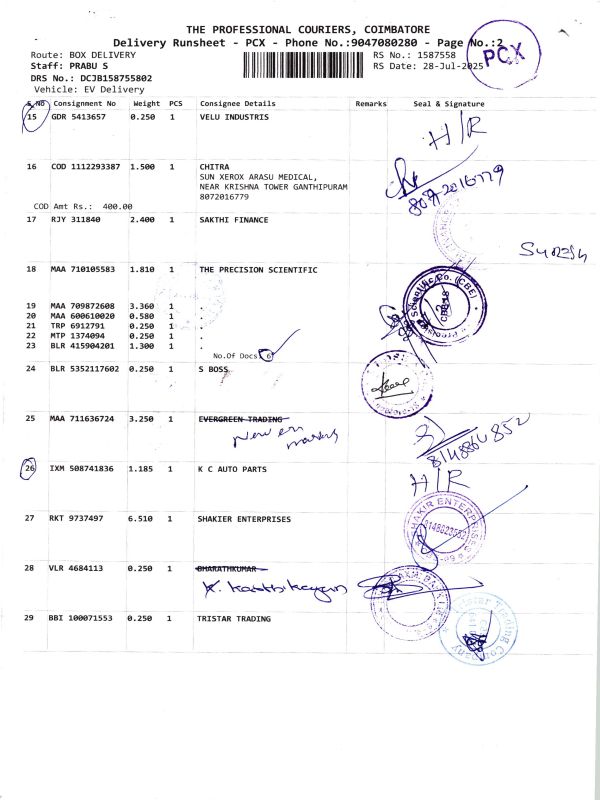 THE PROFESSIONAL COURIERS, COIMBATORE
Delivery Runsheet - PCX - Phone No.:9047080280 - Page No.:2
PCX
Route: BOX DELIVERY RS No.: 1587558
Staff: PRABU S RS Date: 28-Jul-2025
DRS No.: DCJB158755802
Vehicle: EV Delivery
S.NO Consignment No Weight PCS Consignee Details Remarks Seal & Signature
15 GDR 5413657 0.250 1 VELU INDUSTRIS
H/R
16 COD 1112293387 1.500 1 CHITRA
SUN XEROX ARASU MEDICAL,
NEAR KRISHNA TOWER GANTHIPURAM
8072016779
8072016779
COD Amt Rs.: 400.00
17 RJY 311840 2.400 1 SAKTHI FINANCE
Suresh
18 MAA 710105583 1.810 1 THE PRECISION SCIENTIFIC
Scientific Co. (CBE)
19 MAA 709872608 3.360 1 .
20 MAA 600610020 0.580 1 .
21 TRP 6912791 0.250 1 .
22 MTP 1374094 0.250 1 .
23 BLR 415904201 1.300 1 .
No.Of Docs: 6
24 BLR 5352117602 0.250 1 S BOSS
25 MAA 711636724 3.250 1 EVERGREEN TRADING
26 IXM 508741836 1.185 1 K C AUTO PARTS
H/R
27 RKT 9737497 6.510 1 SHAKIER ENTERPRISES
28 VLR 4684113 0.250 1 BHARATHKUMAR
K. Karthikeyan
29 BBI 100071553 0.250 1 TRISTAR TRADING
Tristar Trading Company